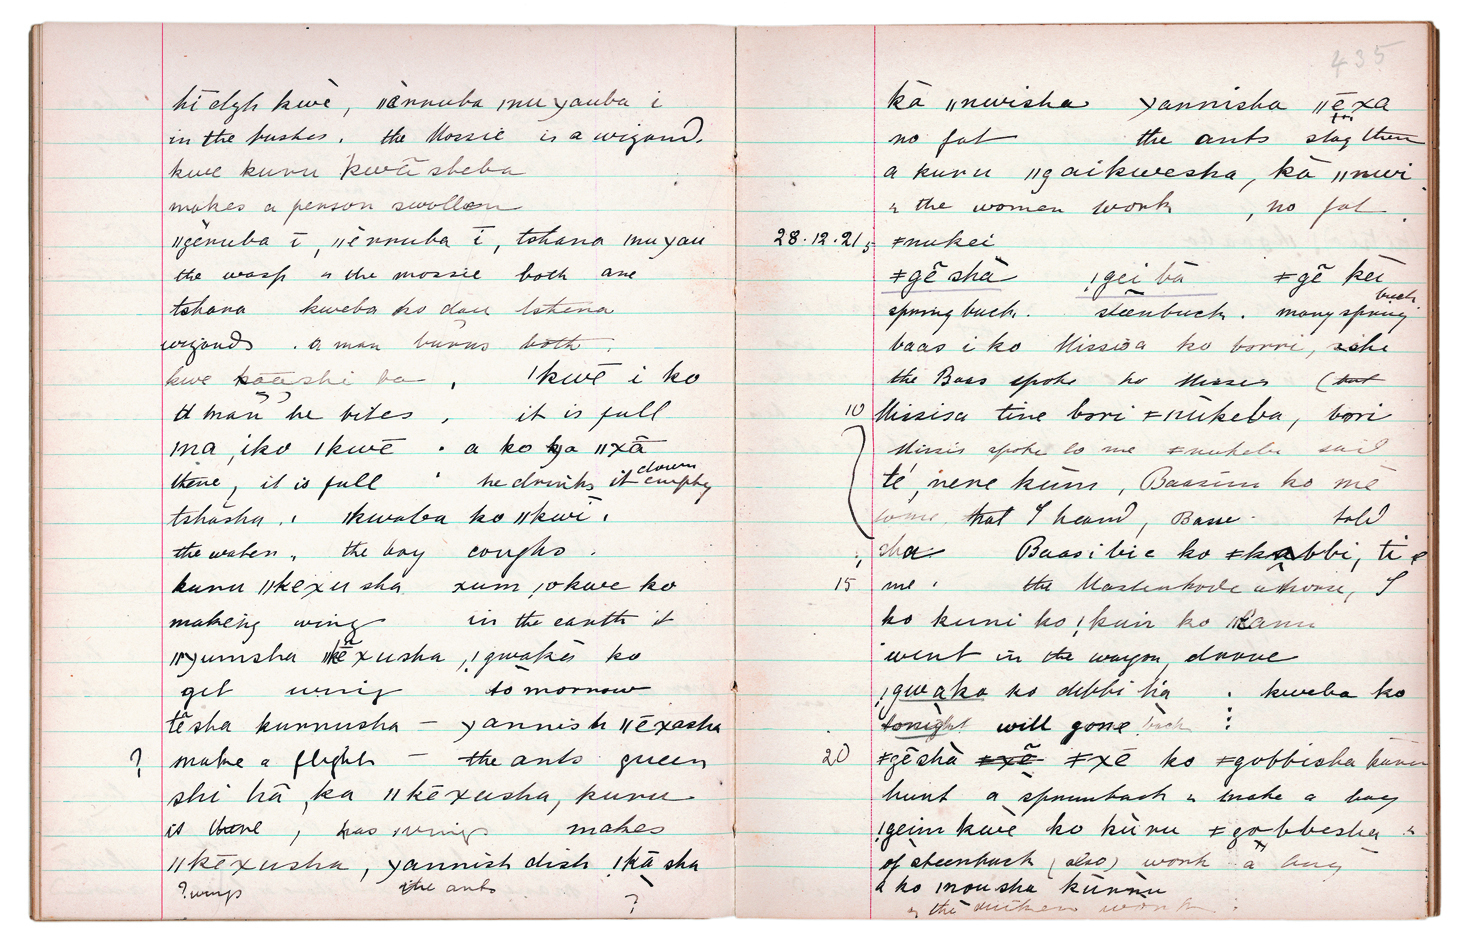 hī dzh kwè, ǁèrruba ǀnu yauba i
in the bushes. the Mossie is a wizard.
kwe kuru kwā sheba
makes a person swollen
ǁgēruba ī, ǁèrruba ī, tshana ǀnu yau
the wasp & the mossie both are
tshana kweba ko dau tshena
wizards. a man burns both.
kwe ba, ǀkwē i ko
man he bites, it is full
ma, iko ǀkwē. a ko ǁxā
there, it is full he drinks it down empty
tshāsha. ǁkwaba ko ǁkwī.
the water. the boy coughs.
kuru ǁkēxusha xum, okwe ko
making wings in the earth it
ǁyumsha ǁkēxusha, ǃgwakēs ko
get wing tomorrow
tēsha kurrusha — yannish ǁēxasha
? make a flight — the ants queen
shi hā, ka ǁkēxusha, kuru
is there, has wings makes
ǁkēxusha, yannish dish ǃkā sha
? wings the ants ?
435
kā ǁnwisha yannisha ǁēxa
no fat the ants stay then
a kuru ǁgaikwesha, kā ǁnwi
& the women work, no fat.
28.12.21 5 ǂnukei
ǂgē shā ǃgei bā ǂgē kei
springbuck. steenbuck. many spring buck
baas i ko Missisa ko borri,
the Baas spoke to Misses (
10 Missisa tine bori ǂnūkeba, bori
Missis spoke to me ǂnukeba said
té, nene kūm, Baasim ko mē
that I heard, Baas told
sha Baasibie ko ǂkabbi, ti e
15 me. the horse, I
ko kuni ko ǃkuin ko
went in the wagon, drove
ǃgwako ko debbi hā. kweba ko
tonight will gone back
20 ǂgēshā ǂxē ǂxē ko ǂgobbisha kūru
hunt a springbuck & make a bag
ǃgeim kwè ko kūru ǂgobbesha &
of steenbuck (also) work a bag
a ko ǀnousha kūrru
& the duiker work.